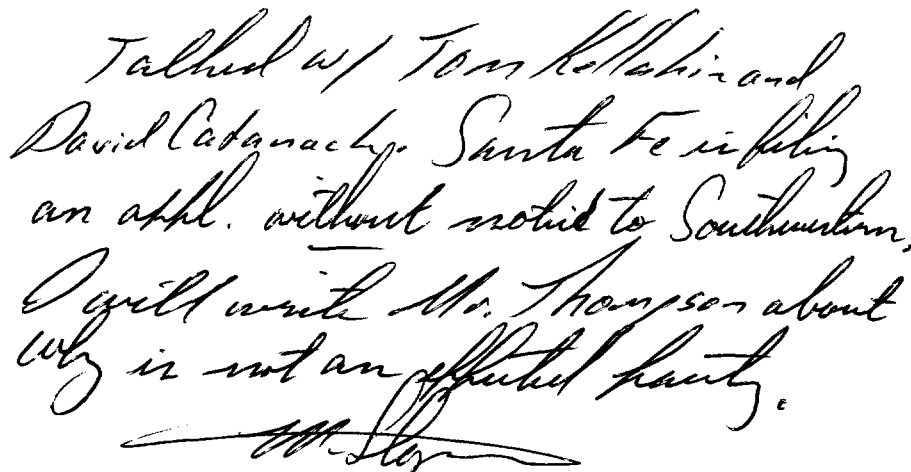 Talked w/ Tom Kellahin and
David Catanach. Santa Fe is filing
an appl. without notice to Southwestern.
I will write Mr. Thompson about
why is not an affected party.